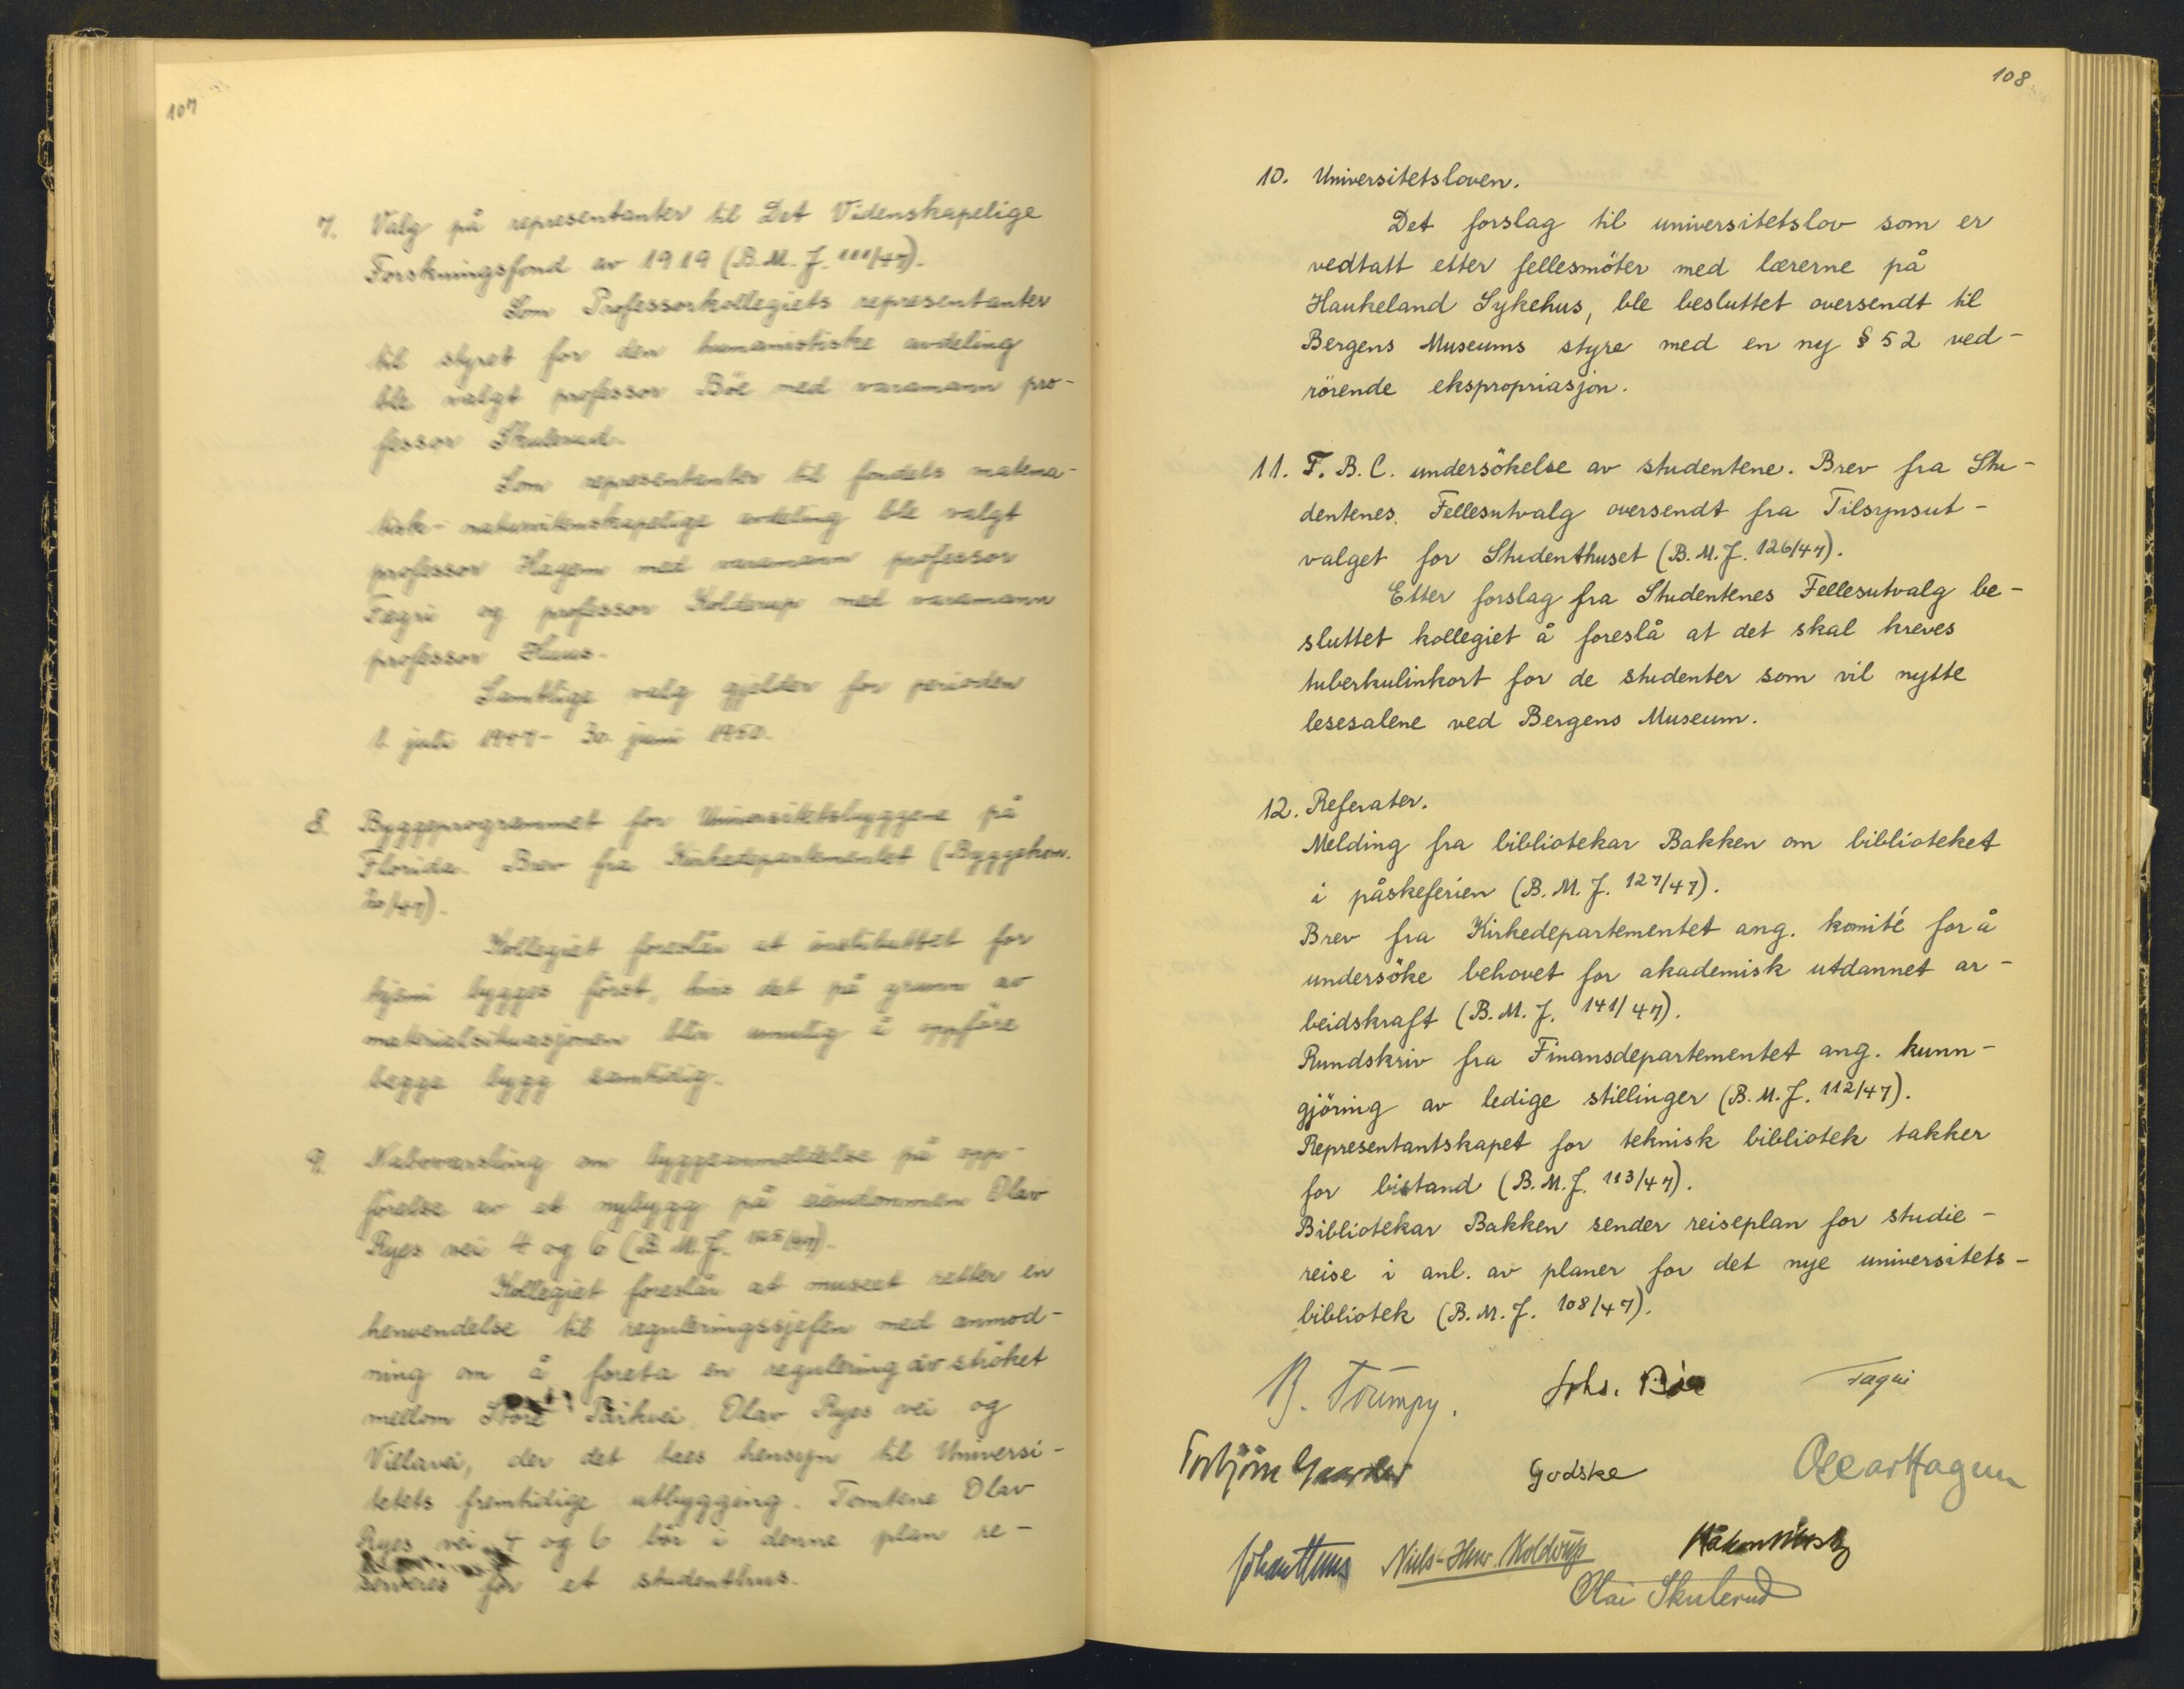 107
7. Valg på representanter til Det Videnskapelige
Forskningsfond av 1919 (B.M.J. 111/47).
Som Professorkollegiets representanter
til styret for den humanistiske avdeling
ble valgt professor Böe med varamann pro-
fessor Skulerud.
Som representanter til fondets matema-
tisk-naturvitenskapelige avdeling ble valgt
professor Hagem med varamann professor
Fægri og professor Kolderup med varamann
professor Huus.
Samtlige valg gjelder for perioden
1. juli 1947 - 30. juni 1950.
8. Byggeprogrammet for Universitetsbyggene på
Florida. Brev fra Kirkedepartementet (Byggekom.
20/47).
Kollegiet foreslår at instituttet for
kjemi bygges först, hvis det på grunn av
materialsituasjonen blir umulig å oppföre
begge bygg samtidig.
9. Nabovarsling om byggeanmeldelse på opp-
förelse av et nybygg på eiendommen Olav
Ryes vei 4 og 6 (B.M.J. 125/47).
Kollegiet foreslår at museet retter en
henvendelse til reguleringssjefen med anmod-
ning om å foreta en regulering av ströket
mellom Store Parkvei, Olav Ryes vei og
Villavei, der det taes hensyn til Universi-
tetets fremtidige utbygging. Tomtene Olav
Ryes vei 4 og 6 bör i denne plan re-
serveres for et studenthus.
108
10. Universitetsloven.
Det forslag til universitetslov som er
vedtatt etter fellesmöter med lærerne på
Haukeland Sykehus, ble besluttet oversendt til
Bergens Museums styre med en ny § 52 ved-
rörende ekspropriasjon.
11. T.B.C. undersökelse av studentene. Brev fra Stu-
dentenes Fellesutvalg oversendt fra Tilsynsut-
valget for Studenthuset (B.M.J. 126/47).
Etter forslag fra Studentenes Fellesutvalg be-
sluttet kollegiet å foreslå at det skal kreves
tuberkulinkort for de studenter som vil nytte
lesesalene ved Bergens Museum.
12. Referater.
Melding fra bibliotekar Bakken om biblioteket
i påskeferien (B.M.J. 127/47).
Brev fra Kirkedepartementet ang. komité for å
undersöke behovet for akademisk utdannet ar-
beidskraft (B.M.J. 141/47).
Rundskriv fra Finansdepartementet ang. kunn-
gjöring av ledige stillinger (B.M.J. 112/47).
Representantskapet for teknisk bibliotek takker
for bistand (B.M.J. 113/47).
Bibliotekar Bakken sender reiseplan for studie-
reise i anl. av planer for det nye universitets-
bibliotek (B.M.J. 108/47).
B. Trumpy. Johs. Böe Fægri
Torbjörn Gaarder Godske Oscar Hagem
Johan Huus Niels-Henr. Kolderup Håkon Mosby
Olai Skulerud